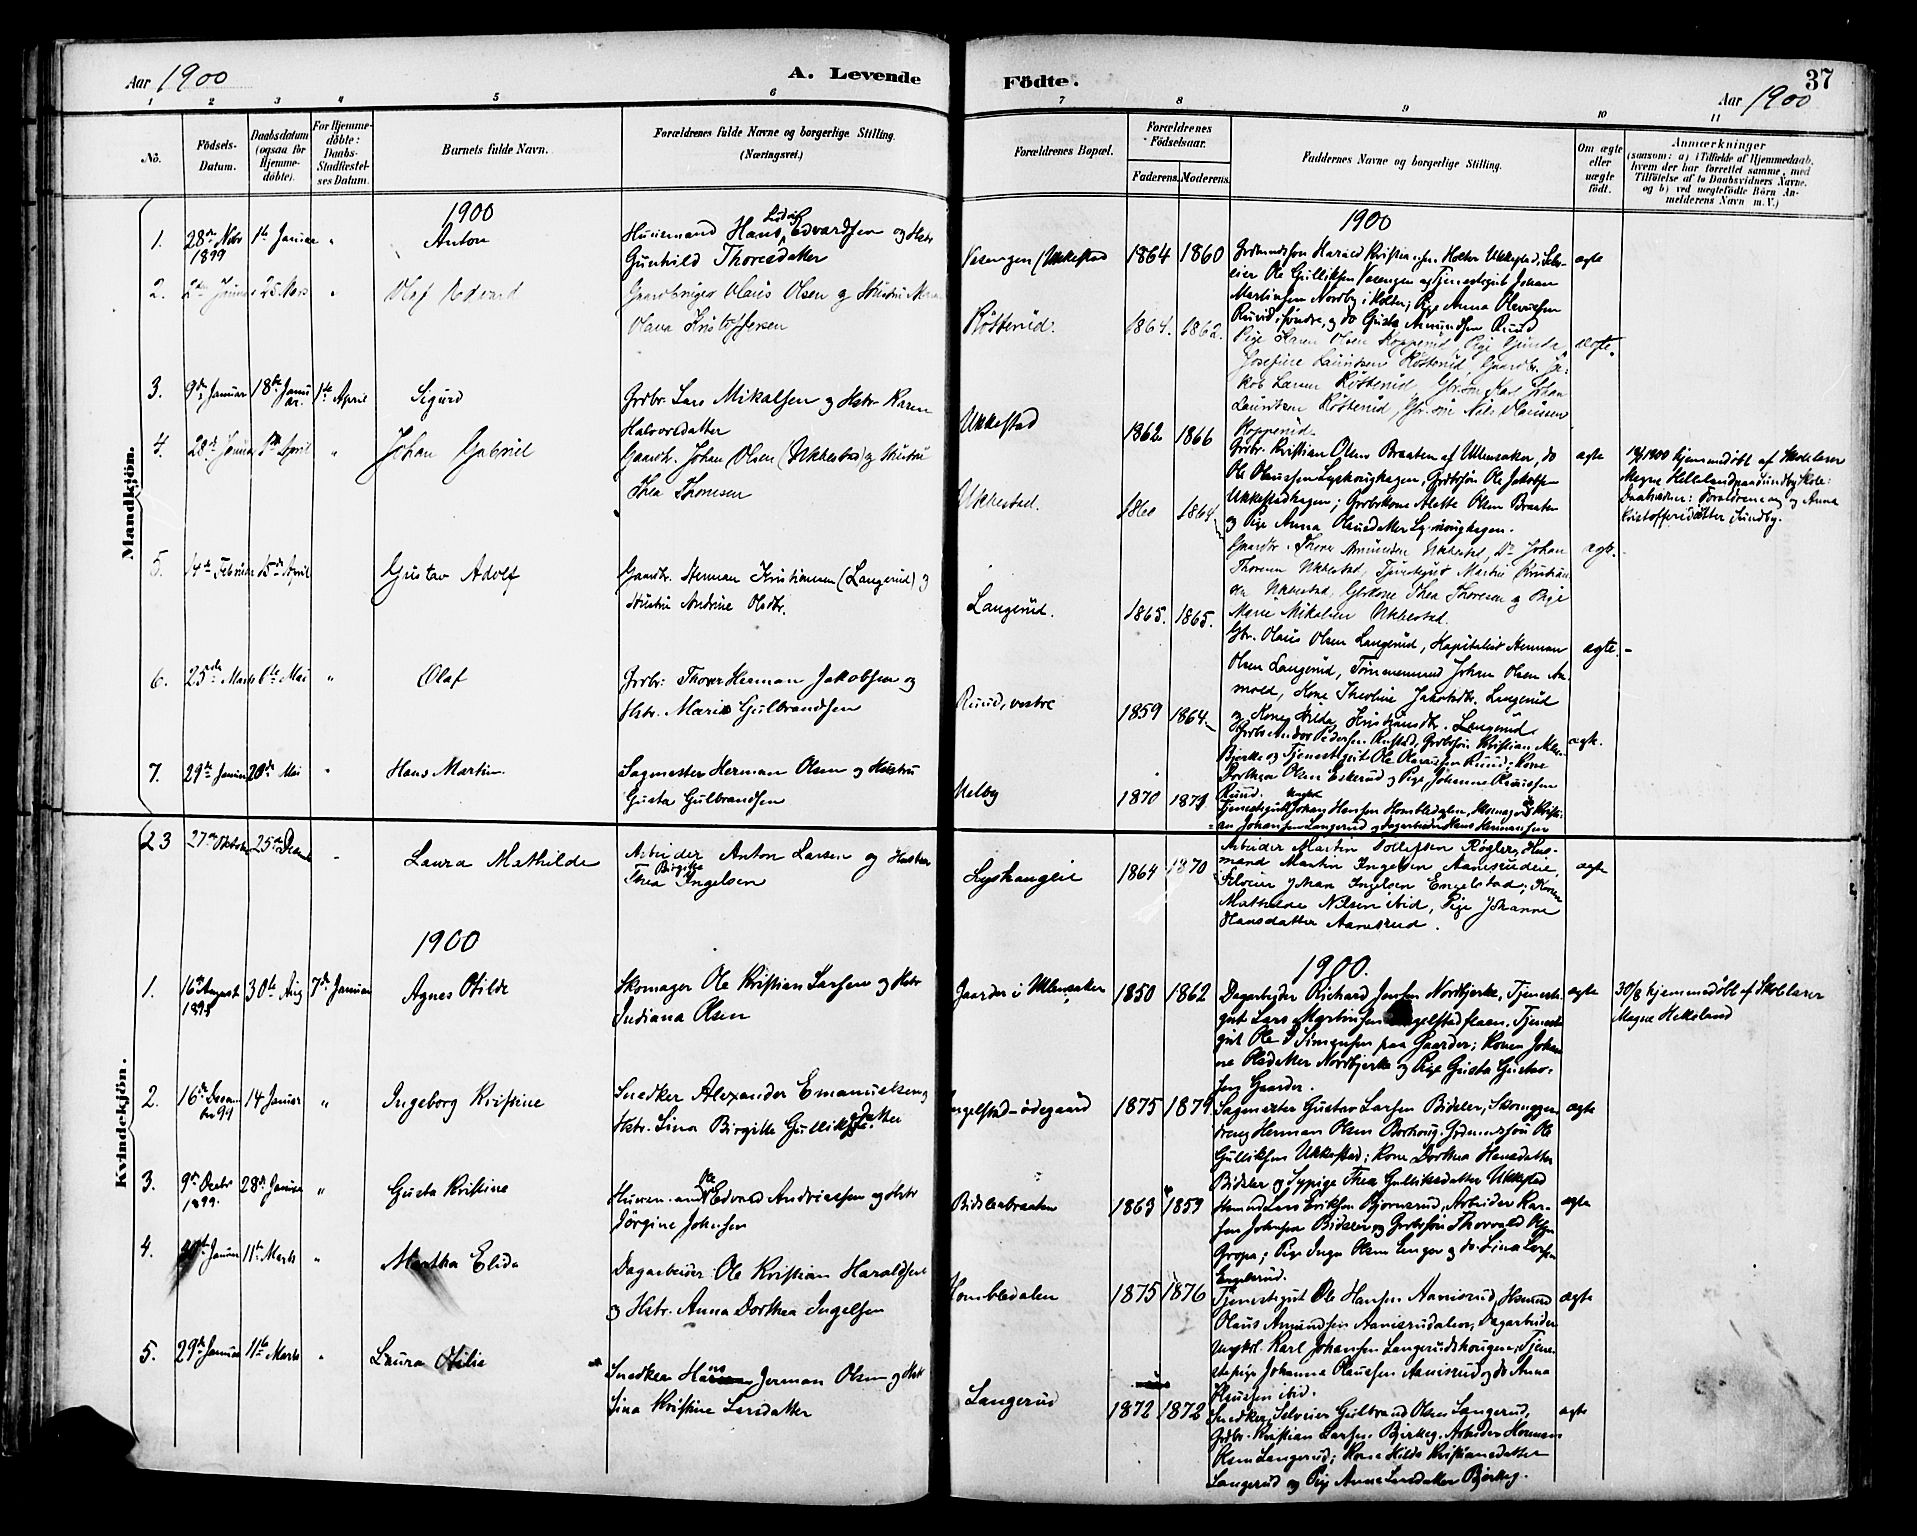 Aar 1900
A. Levende
Födte.
37
Aar 1900
1 2 3 4 5 6 7 8 9 10 11
No.
Födsels-Datum.
Daabsdatum (ogsaa for Hjemme-döbte).
For Hjemme-döbte: Daabs-Stadfæstel-ses Datum.
Barnets fulde Navn.
Forældrenes fulde Navne og borgerlige Stilling.
(Næringsvei.)
Forældrenes Bopæl.
Forældrenes Födselsaar.
Faderens. Moderens.
Faddernes Navne og borgerlige Stilling.
Om ægte eller uægte født.
Anmærkninger
(saasom: a) i Tilfælde af Hjemmedaab,
hvem der har forrettet samme, med
Tilföielse af to Daabsvidners Navne,
og b) ved uægtefödte Börn An-
melderens Navn m. V.)
Mandkjön.
1900
1900
1. 28de Novbr 1899 1ste Januar " Anton
Huusmand Hans Ludvig Edvardsen og Hstr
Gunhild Thoresdatter
1864 1860
Grdmandssøn Harald Kristiansen Holter Ukkestad, Selv-
eier Ole Gulliksen og Tjenestegut Johan
Martinsen Nordby i Holter; Pige Anna Olavesen
Ruud, søndre, og do Gusta Amundsen Ruud
ægte
2. Olaf Edvard
Gaardbruger Olaus Olsen og Hustru
Olava Kristoffersen
Røtterud. 1864. 1862.
Pige Karen Olsen Kopperud, Pige Gunda
Josefine Lauritsen Røtterud, Gaardbr. Ja-
kob Larsen Røtterud, Gbr.søn Karl Johan
Lauritsen Røtterud, Gbr.søn Nils Olaussen
Kopperud.
ægte.
3. 9de Januar 18de Janu ar. 1ste April Sigurd
Grdbr. Lars Mikalsen og Hstr. Karen
Halvorsdatter
Ukkestad 1862 1866
Grdbr. Kristian Olsen Braaten af Ullensaker, do
Ole Olaussen Lyshaughagen, Grdbrsøn Ole Jakobsen
Ukkestadhagen; Grdbrkone Alette Olsen Braaten
og Pige Anna Olausdatter Lyshaughagen.
ægte
1900 hjemmedøbt af Skolelærer
Magne Helleland paa Sundby Skole:
Daabsvidner: Forældrene og Anna
Kristoffersdatter Sundby.
4. 28de Januar April " Johan Gabriel
Gaardbr. Johan Olsen (Ukkestad) og Hustru
Thea Thoresen
Ukkestad. 1860 1864
Gaardbr. Thore Amundsen Ukkestad, Do Johan
Thoresen Ukkestad, Tjenestegut Martin Kristian-
sen Ukkestad, Gbrkone Thea Thoresen og Pige
Marie Mikalsen Ukkestad.
ægte.
5. 14de Februar 15de April Gustav Adolf
Gaardbr. Herman Kristiansen (Langerud) og
Hustru Andrine Olsdtr.
Langerud. 1865. 1865.
Gbr. Olaus Olsen Langerud, Kapitalist Herman
Olsen Langerud, Tømmermand Johan Olsen
Kone Theoline Jakobsdtr. Langerud
og Kone Hilda Kristiansdtr. Langerud.
ægte.
6. 25de Marts 6te Mai " Olaf
Grdbr. Thorer Herman Jakobsen og
Hstr. Marie Gulbrandsen
Ruud, vestre 1859 1864
Grdbr Andor Pedersen Rustad, Grdbrsøn Kristian
Bjerke og Tjenestegut Ole Olaussen Ruud; Kone
Dorthea Olsen Eskerud og Pige Johanne Olaussen
Ruud.
ægte.
7. 29de Januar 20de Mai " Hans Martin
Sagmester Herman Olsen og Hustru
Gusta Gulbrandsen
Melby 1870 1871
Tjenestegut Johan Hansen Hombledalen, Skomager Kristi-
an Johansen Langerud og Dagarbeider Hans Hermansen
23 27de Oktober 25de Decemb " Laura Mathilde
Arbeider Anton Larsen og Hustru
Thea Birgitte Ingelsen
Lyshaugeie 1864 1870
Arbeider Martin Tollefsen Røgler, Hus-
mand Martin Ingelsen Aanesrudeie,
Selveier Johan Ingelsen Engelstad; Kone
Mathilde Nilsen ibid, Pige Johanne
Hansdatter Aanesrud.
ægte
Kvindekjön.
1900
1900.
1. 16de August 30te Aug 7de Januar Agnes Otilde
Skomager Ole Kristian Larsen og Hstr
Indiana Olsen
Gaarder i Ullensaker 1850 1862
Dagarbeider Richard Jensen Nordbjerke, Tjeneste-
gut Lars Martinsen Engelstadflaen, Tjeneste-
gut Ole Simensen paa Gaarder; Konen Johan-
ne Olsdatter Nordbjerke og Pige Gusta Gustav-
sen Gaarder.
ægte
30/8 hjemmedøbt af Skolelærer
Magne Helleland
2. 16de Decem- 14 Januar " Ingeborg Kristine
Snedker Alexander Emanuelsen og
Hstr. Lina Birgitte Gulliksdatter
Engelstad-ødegaard 1875 1879
Sagmester Gustav Larsen Bidsler, Skomager-
dreng Herman Olsen Borhaug, Grdmandssøn Ole
Gulliksen Ukkestad; Kone Dorthea Hansdatter
Bidsler og Sypige Thea Gulliksdatter Ukkestad
ægte
3. 9de Decbr 1899. 28de Januar " Gusta Kristine
Huusmand Ole Edvard Andreassen og Hstr
Jørgine Johnsen
Bidslerbraaten 1863 1859
Husmd Lars Eriksen Bjørnerud, Arbeider Kar-
sen Johnsen Bidsler og Grdbrsøn Thorvald Olsen
Gropa; Pige Inga Olsen Enger og do. Lina Larsen
Engelsrud.
ægte
4. Januar 11te Marts " Martha Elida
Dagarbeider Ole Kristian Haraldsen
og Hstr. Anna Dorthea Ingelsen
Hombledalen 1875 1876
Tjenestegut Ole Hansen Aanesrud, Husmd
Olaus Amundsen Aanesruddalen, Dagarbeider
Ungkl. Karl Johansen Langerudshaugen; Tjene-
stepige Johanna Olaussen Aanesrud og do. Anna
Olaussen ibid.
ægte
5. 29de Januar 11te Marts " Laura Otilie
Snedker Hans Jerman Olsen og Hstr
Lina Kristine Larsdatter
Langerud 1872 1872
Snedker, Selveier Gulbrand Olsen Langerud,
Grdbr. Kristian Larsen Bjerkeg. Arbeider Herman
Olsen Langerud; Kone Hilda Kristiansdatter
Langerud og Pige Anna Larsdatter Bjerkeg.
ægte